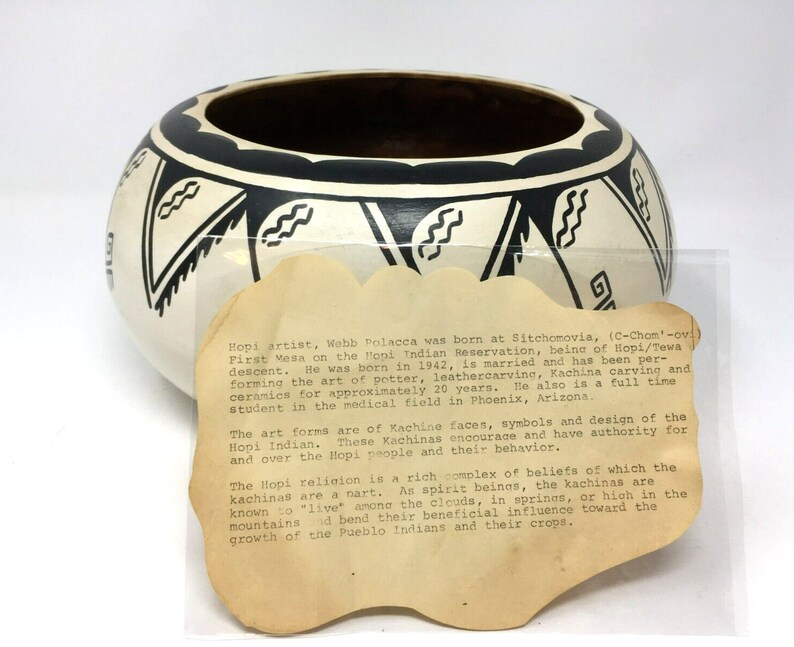 Hopi artist, Webb Polacca was born at Sitchomovia, (C-Chom'-ovi)
First Mesa on the Hopi Indian Reservation, being of Hopi/Tewa
descent. He was born in 1942, is married and has been per-
forming the art of potter, leathercarving, Kachina carving and
ceramics for approximately 20 years. He also is a full time
student in the medical field in Phoenix, Arizona.
The art forms are of Kachine faces, symbols and design of the
Hopi Indian. These Kachinas encourage and have authority for
and over the Hopi people and their behavior.
The Hopi religion is a rich complex of beliefs of which the
kachinas are a part. As spirit beings, the kachinas are
known to "live" among the clouds, in springs, or high in the
mountains and bend their beneficial influence toward the
growth of the Pueblo Indians and their crops.